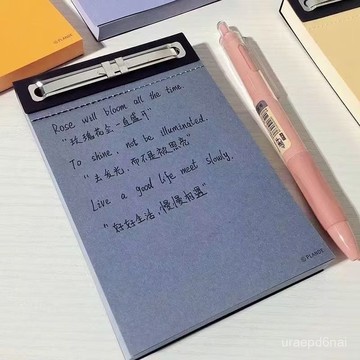 Rose will bloom all the time
"玫瑰花会一直盛开"
To shine, not be illuminated.
"去发光,而不是被照亮"
Live a good life meet slowly.
"好好生活,慢慢相遇"
© PLANDS
uraepd6nal